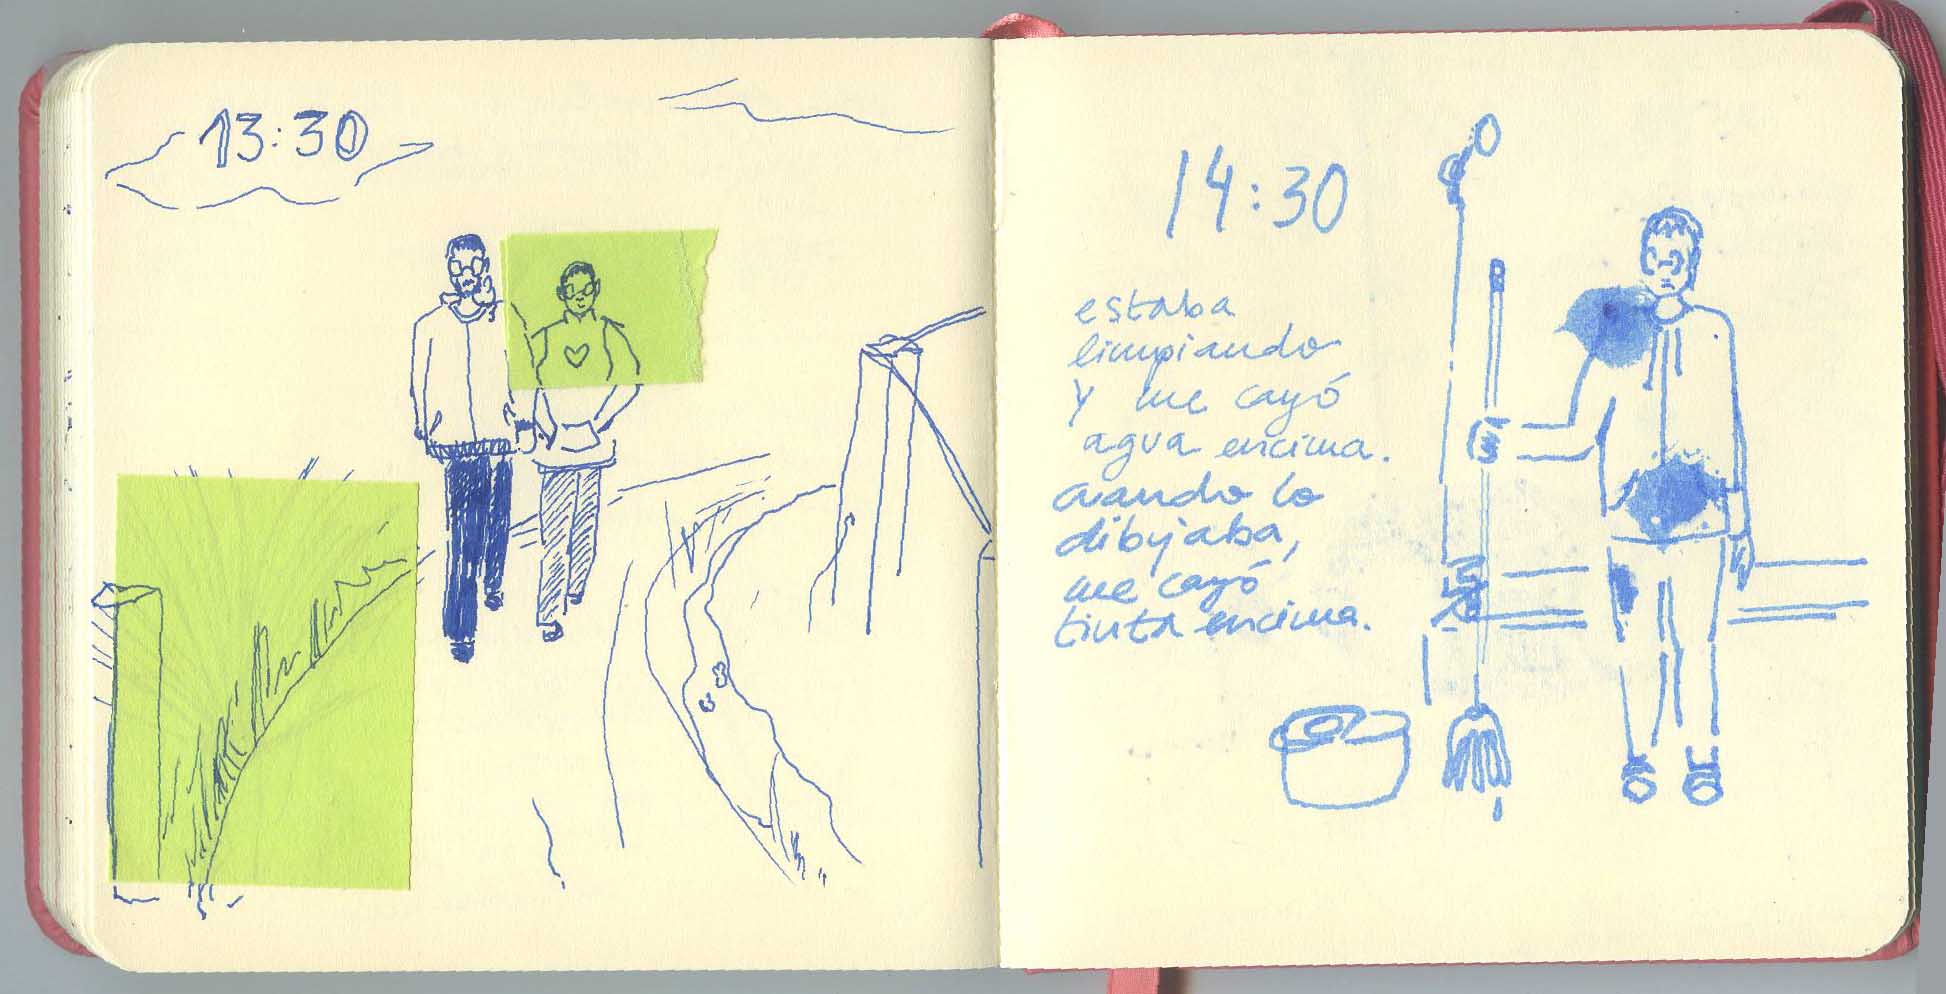 13:30
14:30
estaba
limpiando
y me cayó
agua encima.
cuando lo
dibujaba,
me cayó
tinta encima.